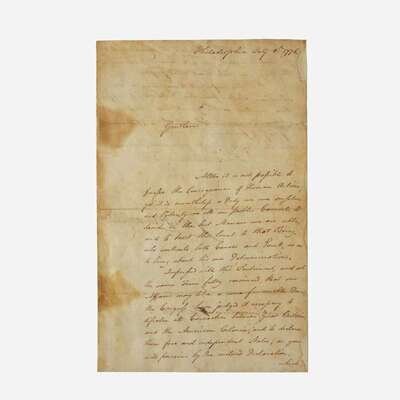 Philadelphia July 1776
Gentlemen
Altho it is not possible to
foresee the Consequences of Human Actions,
yet it is nevertheless a Duty we owe ourselves
and Posterity in all our public Counsels, to
decide in the best Manner we are able,
and to trust the Event to that Being,
who controuls both Causes and Events, so as
to bring about his own Determinations.
Impressed with this Sentiment, and at
the same Time fully convinced that our
Affairs may take a more favourable Turn,
the Congress have judged it necessary to
dissolve all Connection between Great Britain
and the American Colonies, and to declare
them free and independent States, as you
will perceive by the enclosed Declaration,
which